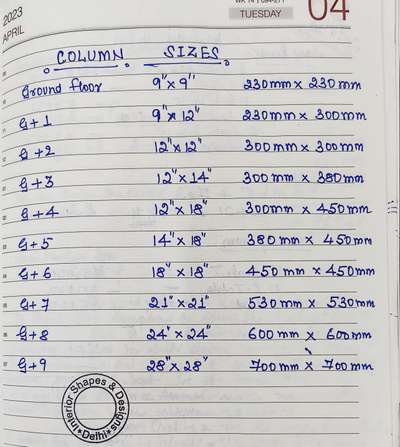 2023
APRIL
TUESDAY 04
COLUMN SIZES
Ground floor 9"x9" 230mm x 230mm
G+1 9"x12" 230mm x 300mm
G+2 12"x12" 300mm x 300mm
G+3 12"x14" 300mm x 380mm
G+4 12"x18" 300mm x 450mm
G+5 14"x18" 380mm x 450mm
G+6 18"x18" 450mm x 450mm
G+7 21"x21" 530mm x 530mm
G+8 24"x24" 600mm x 600mm
G+9 28"x28" 700mm x 700mm
Interior Shapes & Designs
*Delhi*